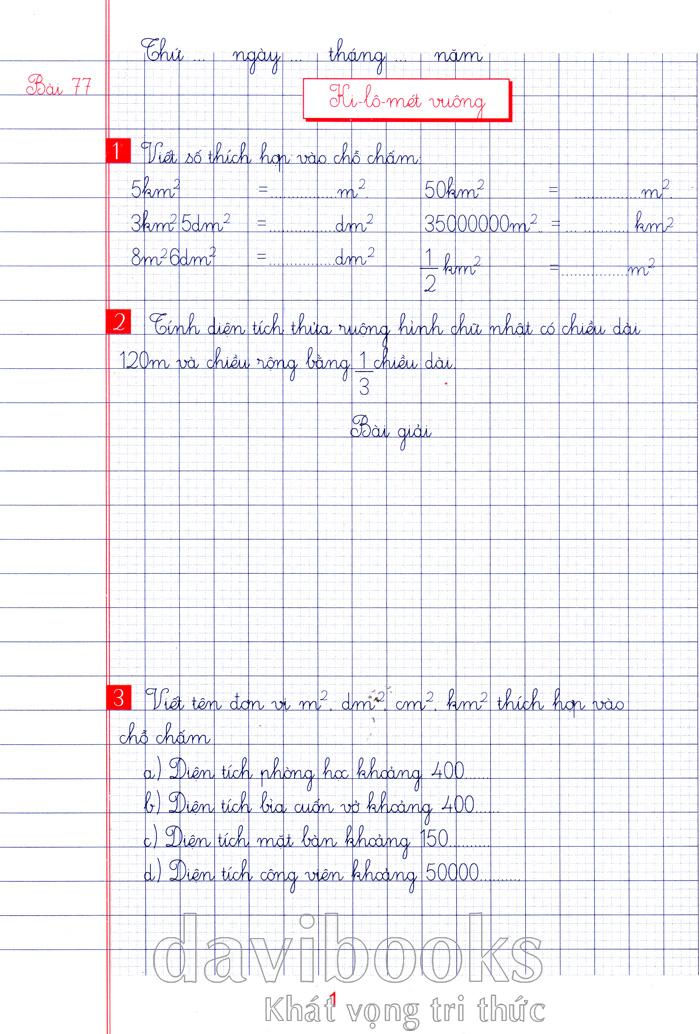 Thứ ... ngày ... tháng ... năm
Bài 77
Ki-lô-mét vuông
1 Viết số thích hợp vào chỗ chấm:
5km² = ................m². 50km² = ................m².
3km² 5dm² = ................dm² 35000000m². = ... ............ km²
8m² 6dm² = ................dm² 1/2 km² = ................m²
2 Tính diện tích thửa ruộng hình chữ nhật có chiều dài
120m và chiều rộng bằng 1/3 chiều dài.
Bài giải
3 Viết tên đơn vị m², dm², cm², km² thích hợp vào
chỗ chấm
a) Diện tích phòng học khoảng 400......
b) Diện tích bìa cuốn vở khoảng 400......
c) Diện tích mặt bàn khoảng 150..........
d) Diện tích công viên khoảng 50000..........
davibooks
1
Khát vọng tri thức